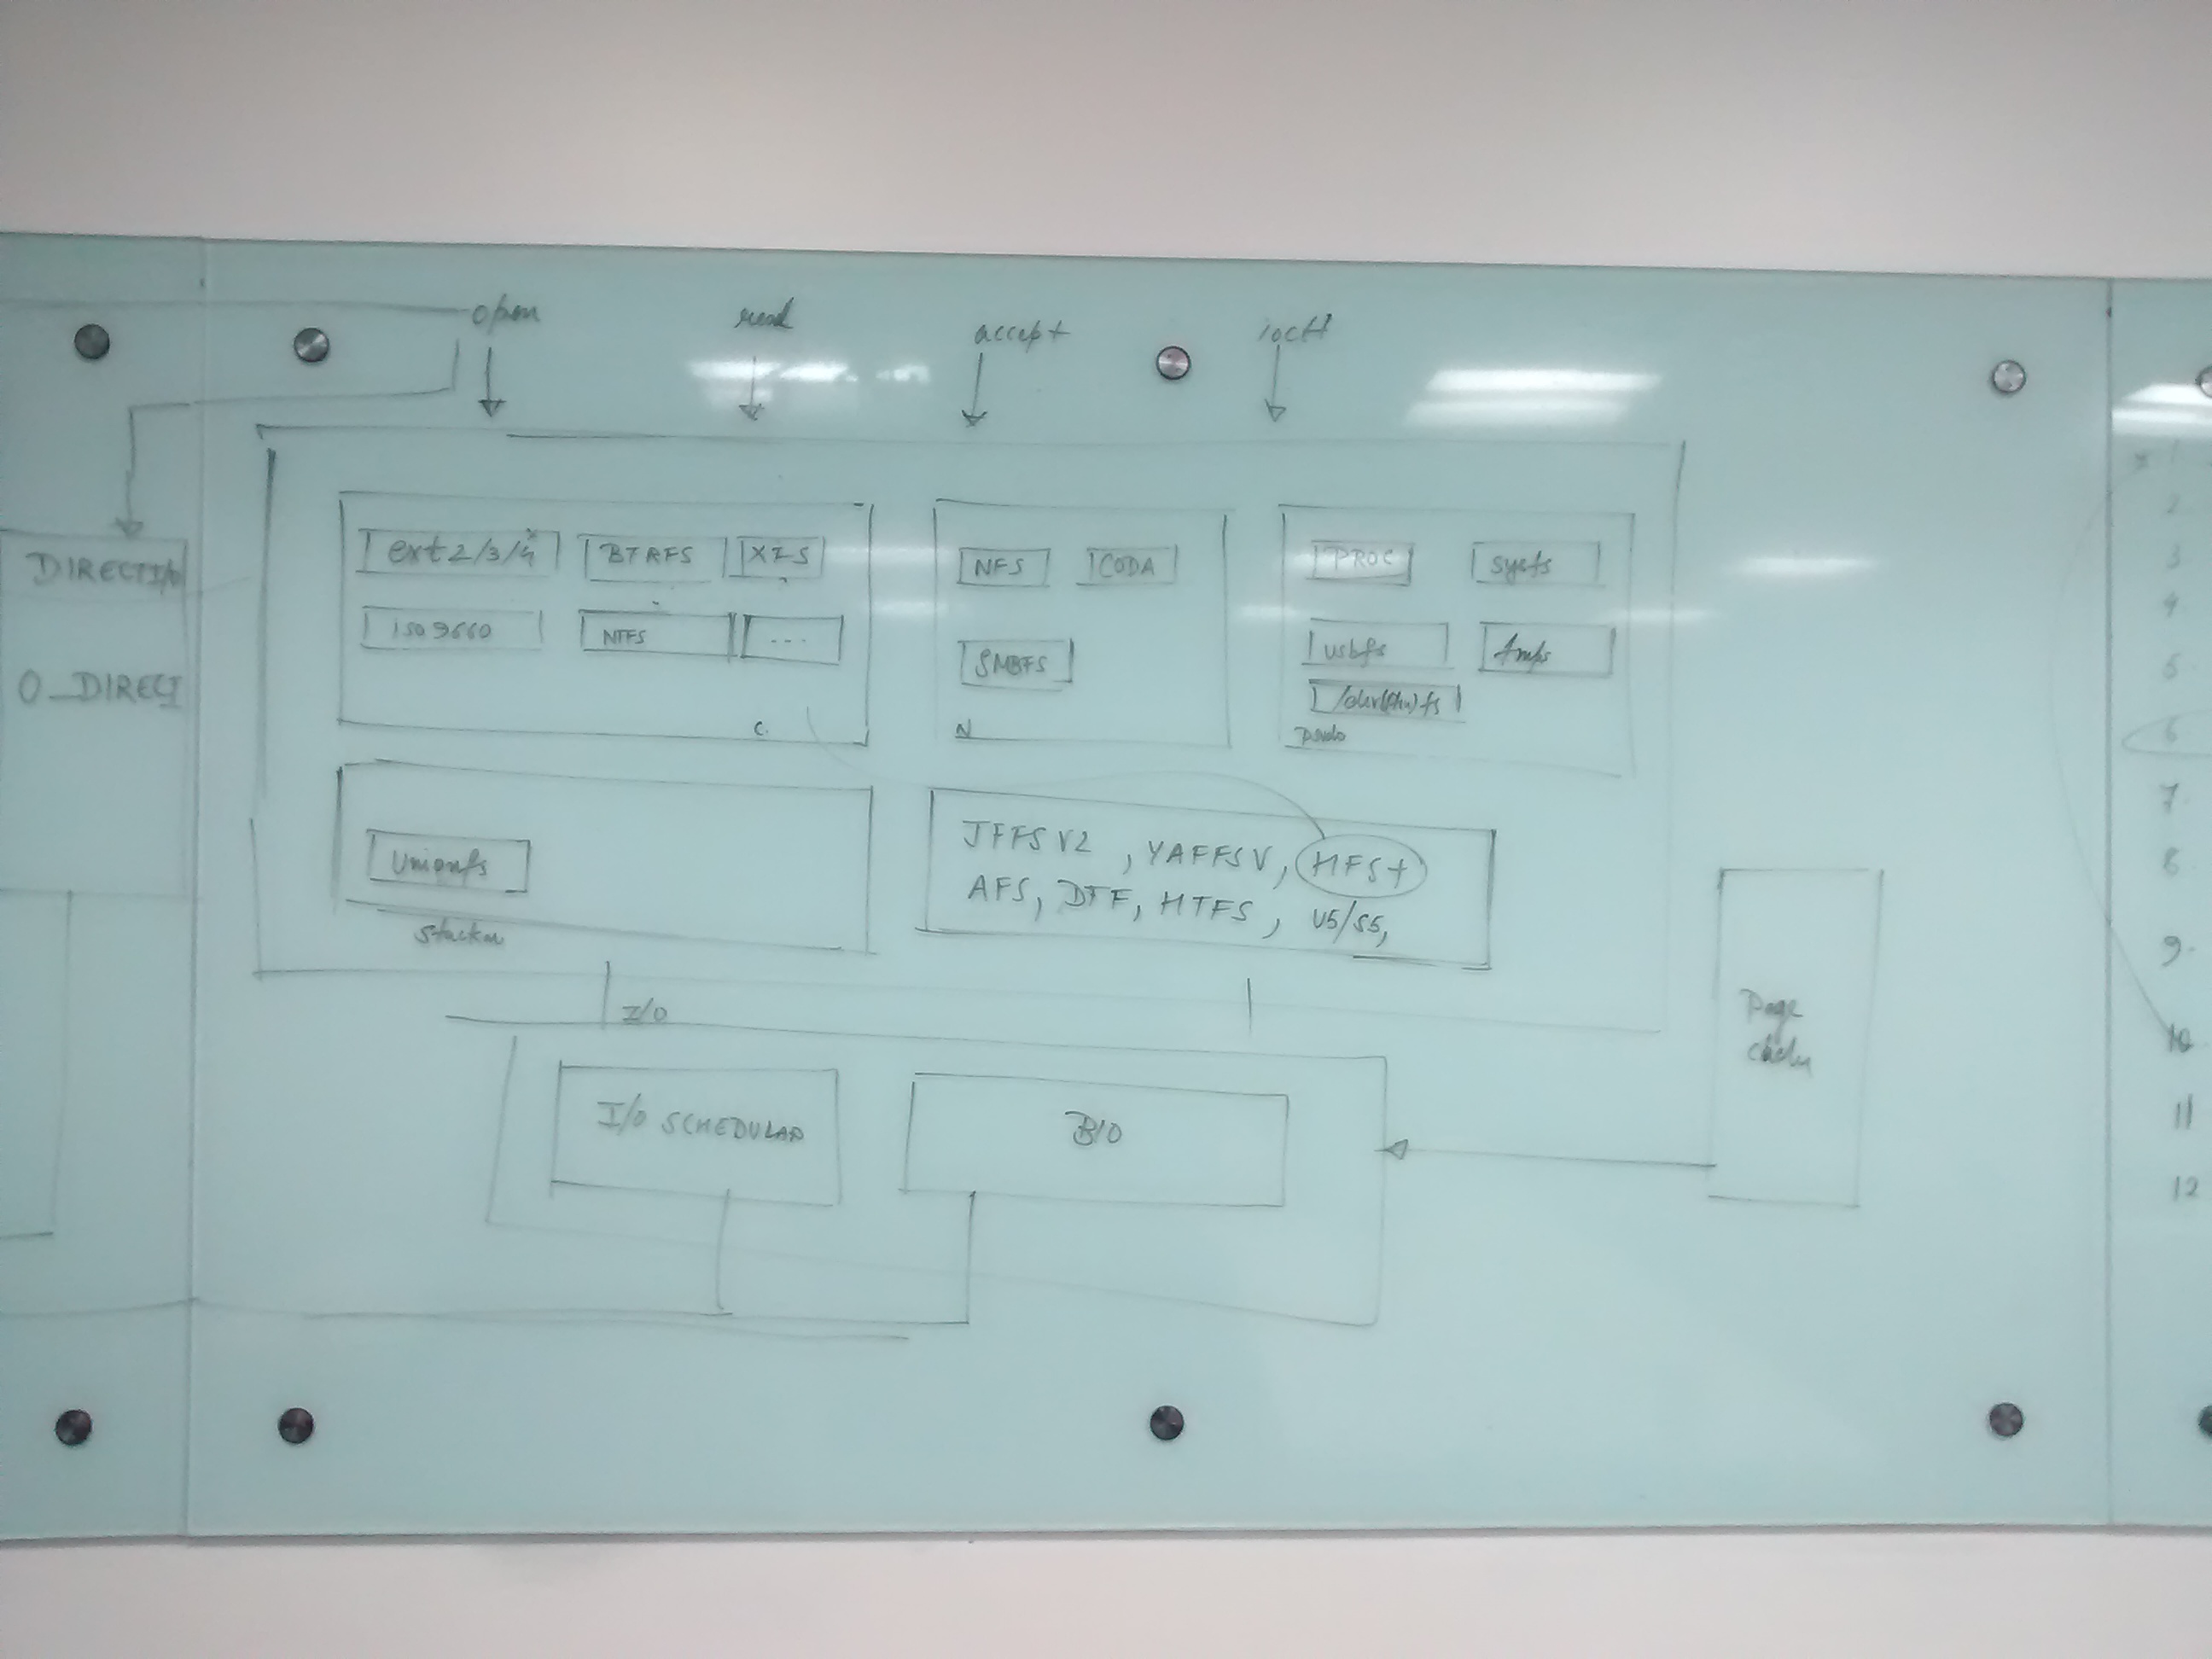 open read accept ioctl
DIRECT I/O
O_DIRECT
ext2/3/4 BTRFS XFS
iso9660 NTFS ...
C.
NFS CODA
SMBFS
N
PROC sysfs
usbfs
Unionfs
JFFS V2 , YAFFS V, HFS+
AFS, DTF, HTFS , V5/S5,
I/O
I/O SCHEDULAR BIO
Page
1
2
3
4
5
6
7
8
9.
10
11
12